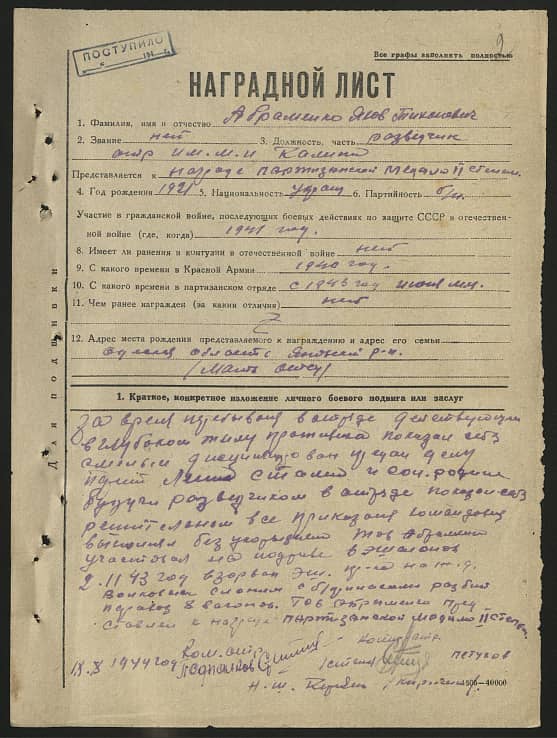 ПОСТУПИЛО
194 г.
2
Все графы заполнять полностью
НАГРАДНОЙ ЛИСТ
1. Фамилия, имя и отчество Абраменко Яков Тихонович
2. Звание нет 3. Должность, часть разведчик
отр им. М.И Калин
Представляется к награде партизанской медалю II степен.
4. Год рождения 1921 5. Национальность Украи 6. Партийность б/п.
Участие в гражданской войне, последующих боевых действиях по защите СССР в отечествен-
ной войне (где, когда) 1941 год.
8. Имеет ли ранения и контузии в отечественной войне нет
9. С какого времени в Красной Армии 1940 год.
10. С какого времени в партизанском отряде с 1943 год июня м-ц.
11. Чем ранее награжден (за какии отличия) нет
12. Адрес места рождения представляемого к награждению и адрес его семьи
област р-н.
/ мать отец /
Для подшивки
1. Краткое, конкретное изложение личного боевого подвига или заслуг
За время пребывания в отряде действующем
в глубоком тилу противника показал себя
смелым дисциплинирован предан делу
парти Ленина Сталина и соц. родине
будучи разведчиком в отряде показал себя
решительном все приказания командования
выполнял без Тов Абраменко
участвовал на подриве эшалонов
2.11 43 год взорван эш. пр-ка на ж.д.
с разбит
паравоз 8 вагонов. Тов Абраменко пред
ставлен к награде партизанской медалю II степен
Ком. отр.
Комис. отр.
IX.X 1944 год
Петухов
Н.Ш.
1506—40000